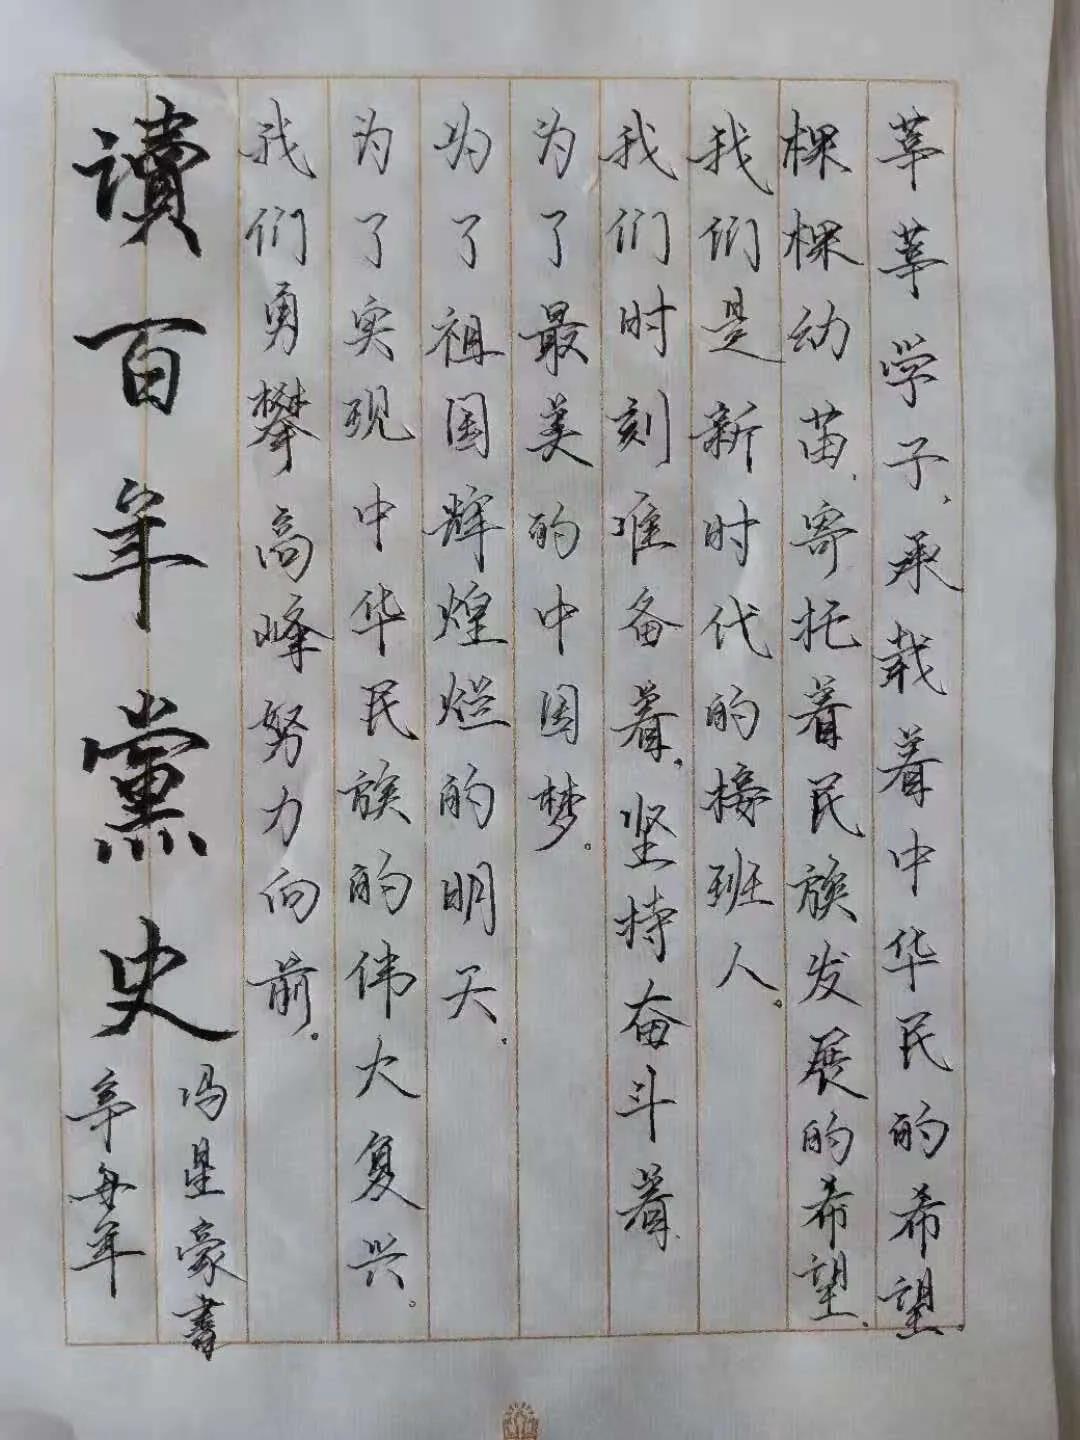 莘莘学子,承载着中华民的希望.
棵棵幼苗,寄托着民族发展的希望.
我们是新时代的接班人。
我们时刻准备着,坚持奋斗着
为了最美的中国梦。
为了祖国辉煌烂的明天。
为了实现中华民族的伟大复兴。
我们勇攀高峰努力向前。
讀百年黨史
冯星豪書
辛丑年